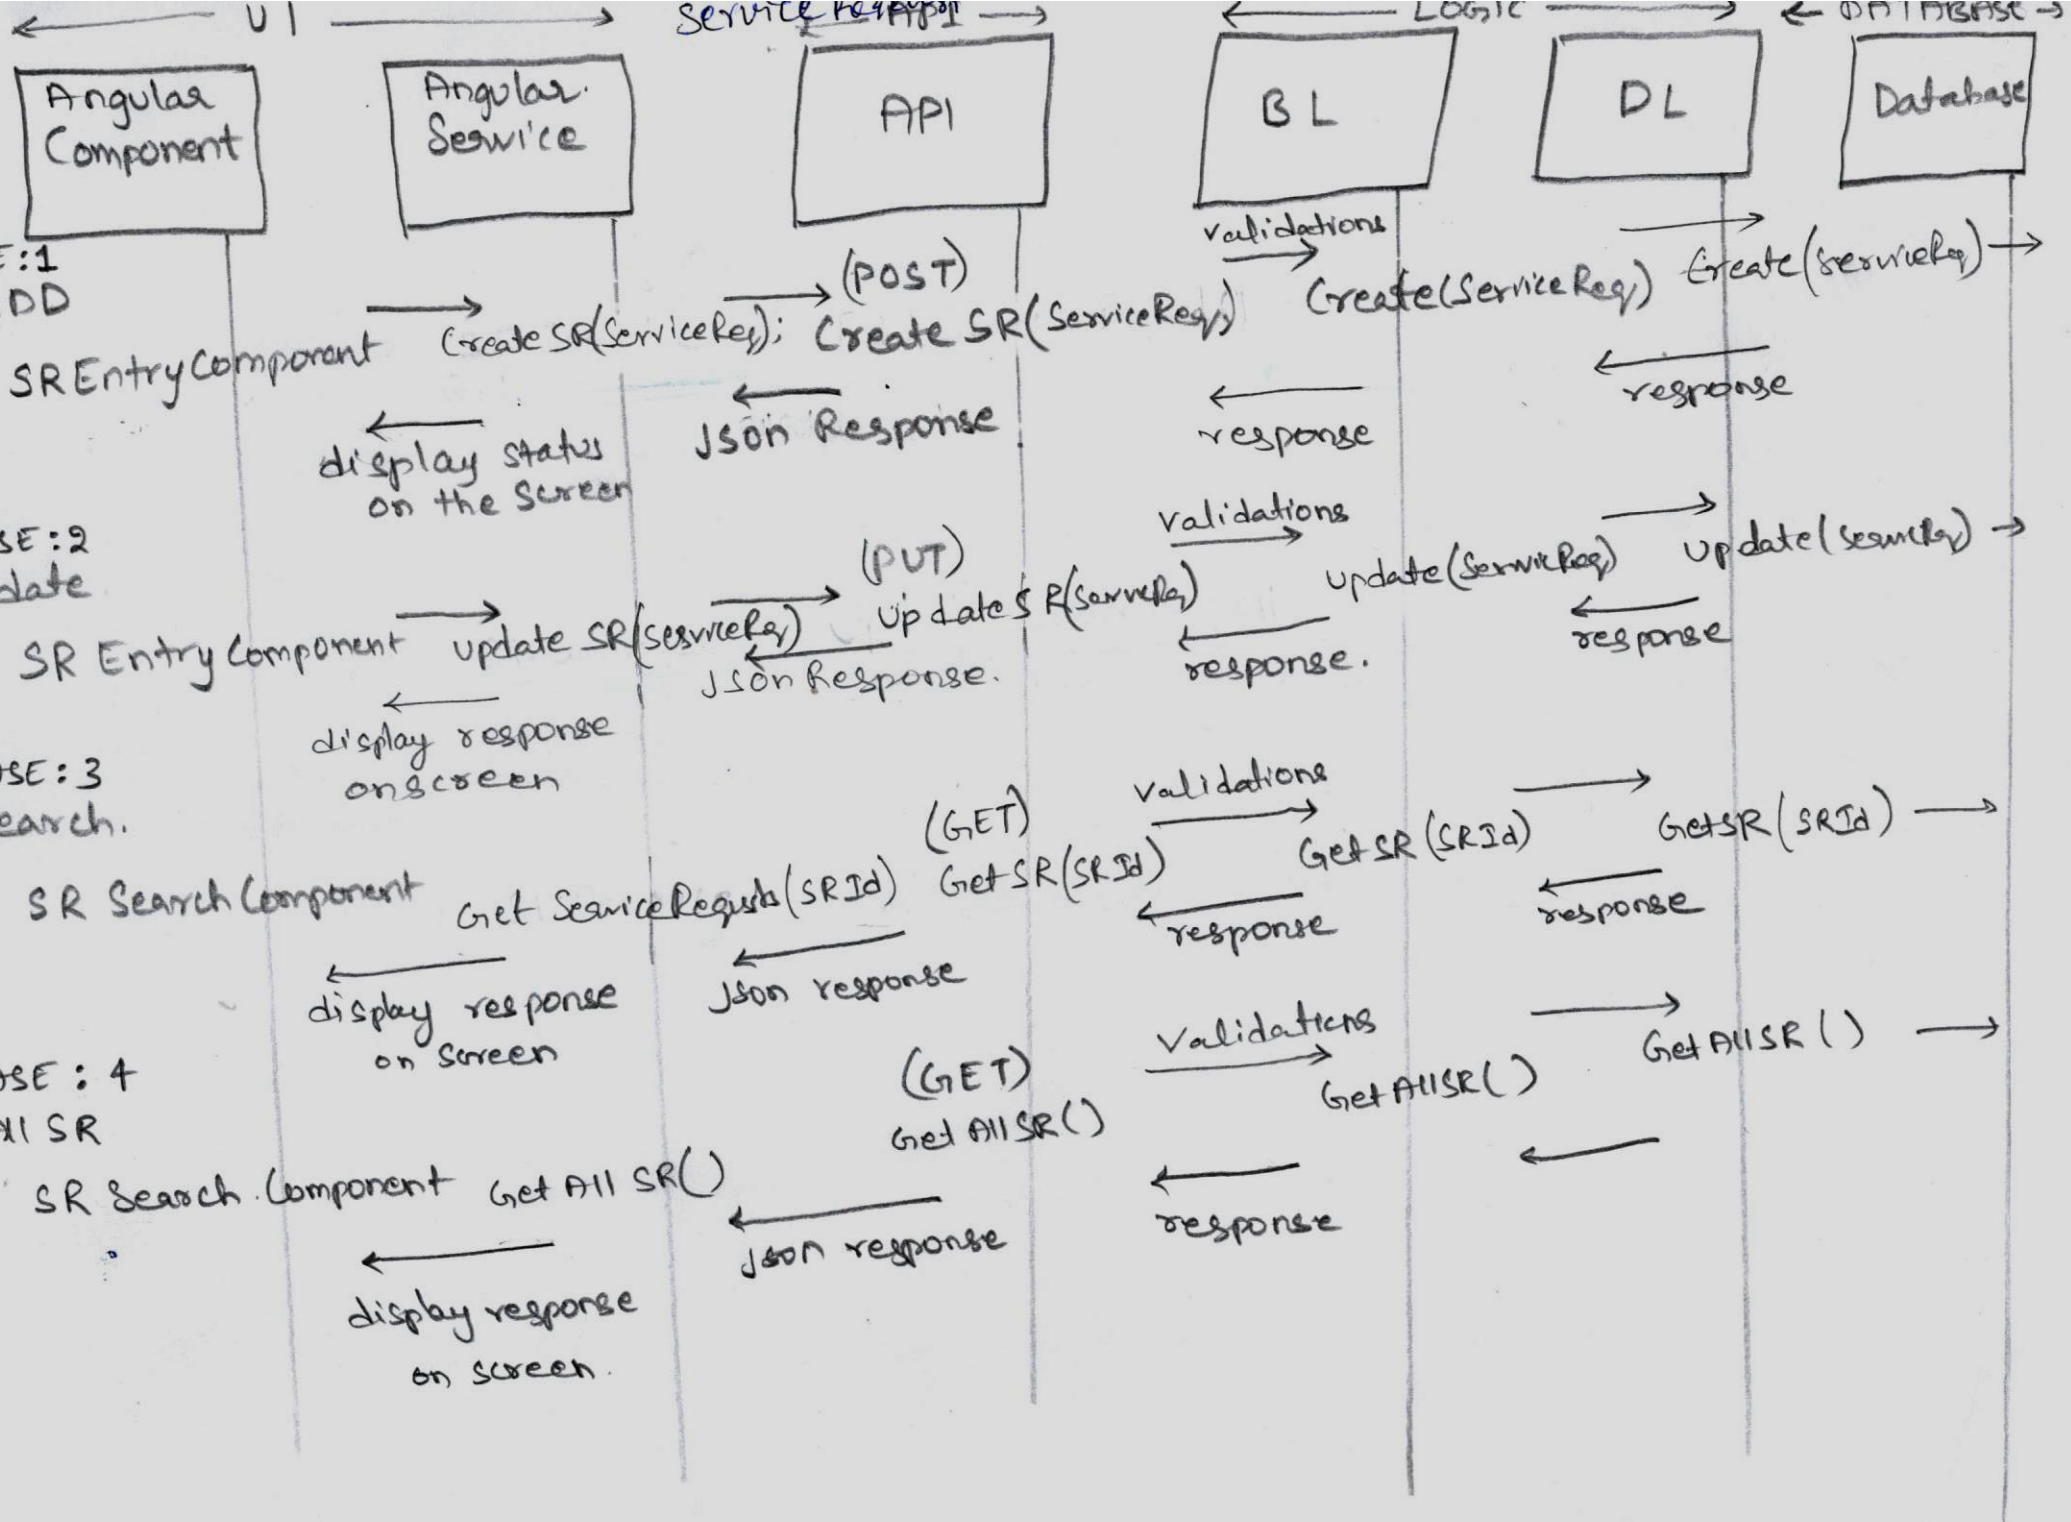 UI
API
LOGIC
DATABASE
Angular
Component
Angular.
Service
API
BL
DL
Database
E:1
DD
SR Entry Component
Create SR(ServiceReq);
(POST)
Create SR(ServiceReq)
validations
Create(ServiceReq)
Create(ServiceReq)
display status
on the screen
Json Response
response
response
SE:2
date
SR Entry Component
update SR(serviceReq)
(PUT)
update SR(ServiceReq)
validations
update(ServiceReq)
update(serviceReq)
display response
onscreen
Json Response.
response.
response
SE:3
earch.
SR Search Component
Get ServiceRequsts(SRId)
(GET)
GetSR(SRId)
validations
GetSR(SRId)
GetSR(SRId)
display response
on screen
Json response
response
response
SE:4
All SR
SR Search.Component
Get All SR()
(GET)
Get All SR()
validations
Get AllSR()
Get AllSR()
display response
on screen.
json response
response